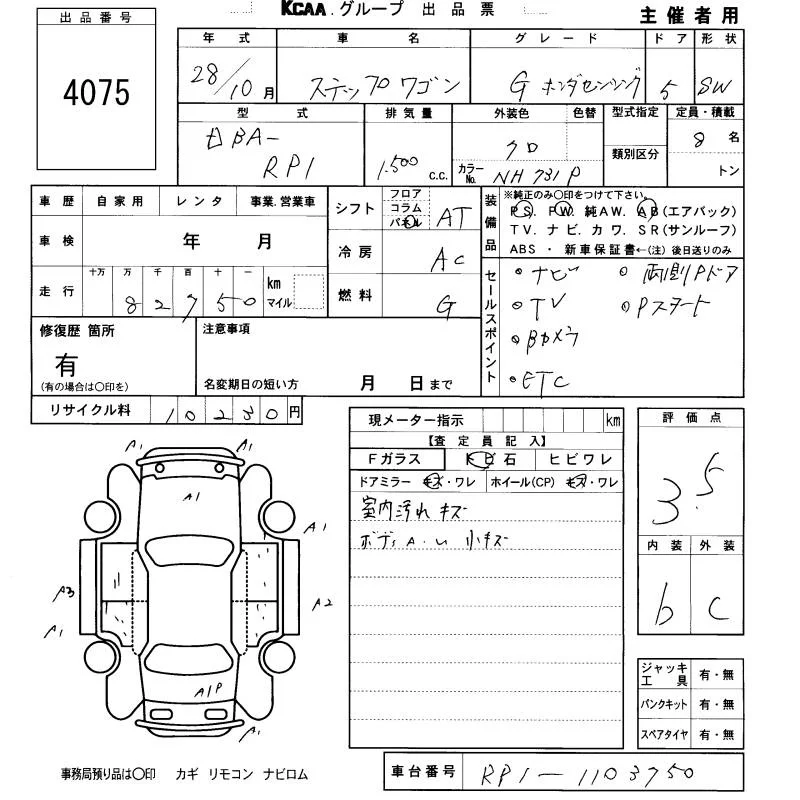 KCAA.グループ 出品票
主催者用
出品番号
4075
年式 車名 グレード ドア 形状
28/10月 ステップワゴン G ホンダセンシング 5 SW
型式 排気量 外装色 色替 型式指定 定員・積載
DBA-RP1 1,500 c.c. クロ 類別区分 8名
カラーNo. NH731P トン
車歴 自家用 レンタ 事業.営業車
車検 年 月
走行 十万 万 千 百 十 一 km マイル
82750
シフト フロア コラム パネル AT
冷房 AC
燃料 G
装備品 ※純正のみ〇印をつけて下さい。
PS. PW. 純AW. AB(エアバック)
TV. ナビ. カワ. SR(サンルーフ)
ABS ・ 新車保証書←(注) 後日送りのみ
セールスポイント
・ナビ ○両側Pドア
○TV ○Pスタート
○Bカメラ
・ETC
修復歴 箇所
有
(有の場合は〇印を)
注意事項
名変期日の短い方 月 日まで
リサイクル料 10230円
現メーター指示 km
【査定員記入】
Fガラス トビ石 ヒビワレ
ドアミラー キズ・ワレ ホイール(CP) キズ・ワレ
室内汚れ キズ
ボディA.U 小キズ
評価点
3.5
内装 外装
b C
A1 A1
A1
A1
A3 A2
A1
A1P
A1
ジャッキ工具 有・無
パンクキット 有・無
スペアタイヤ 有・無
事務局預り品は〇印 カギ リモコン ナビロム
車台番号 RP1-1103750